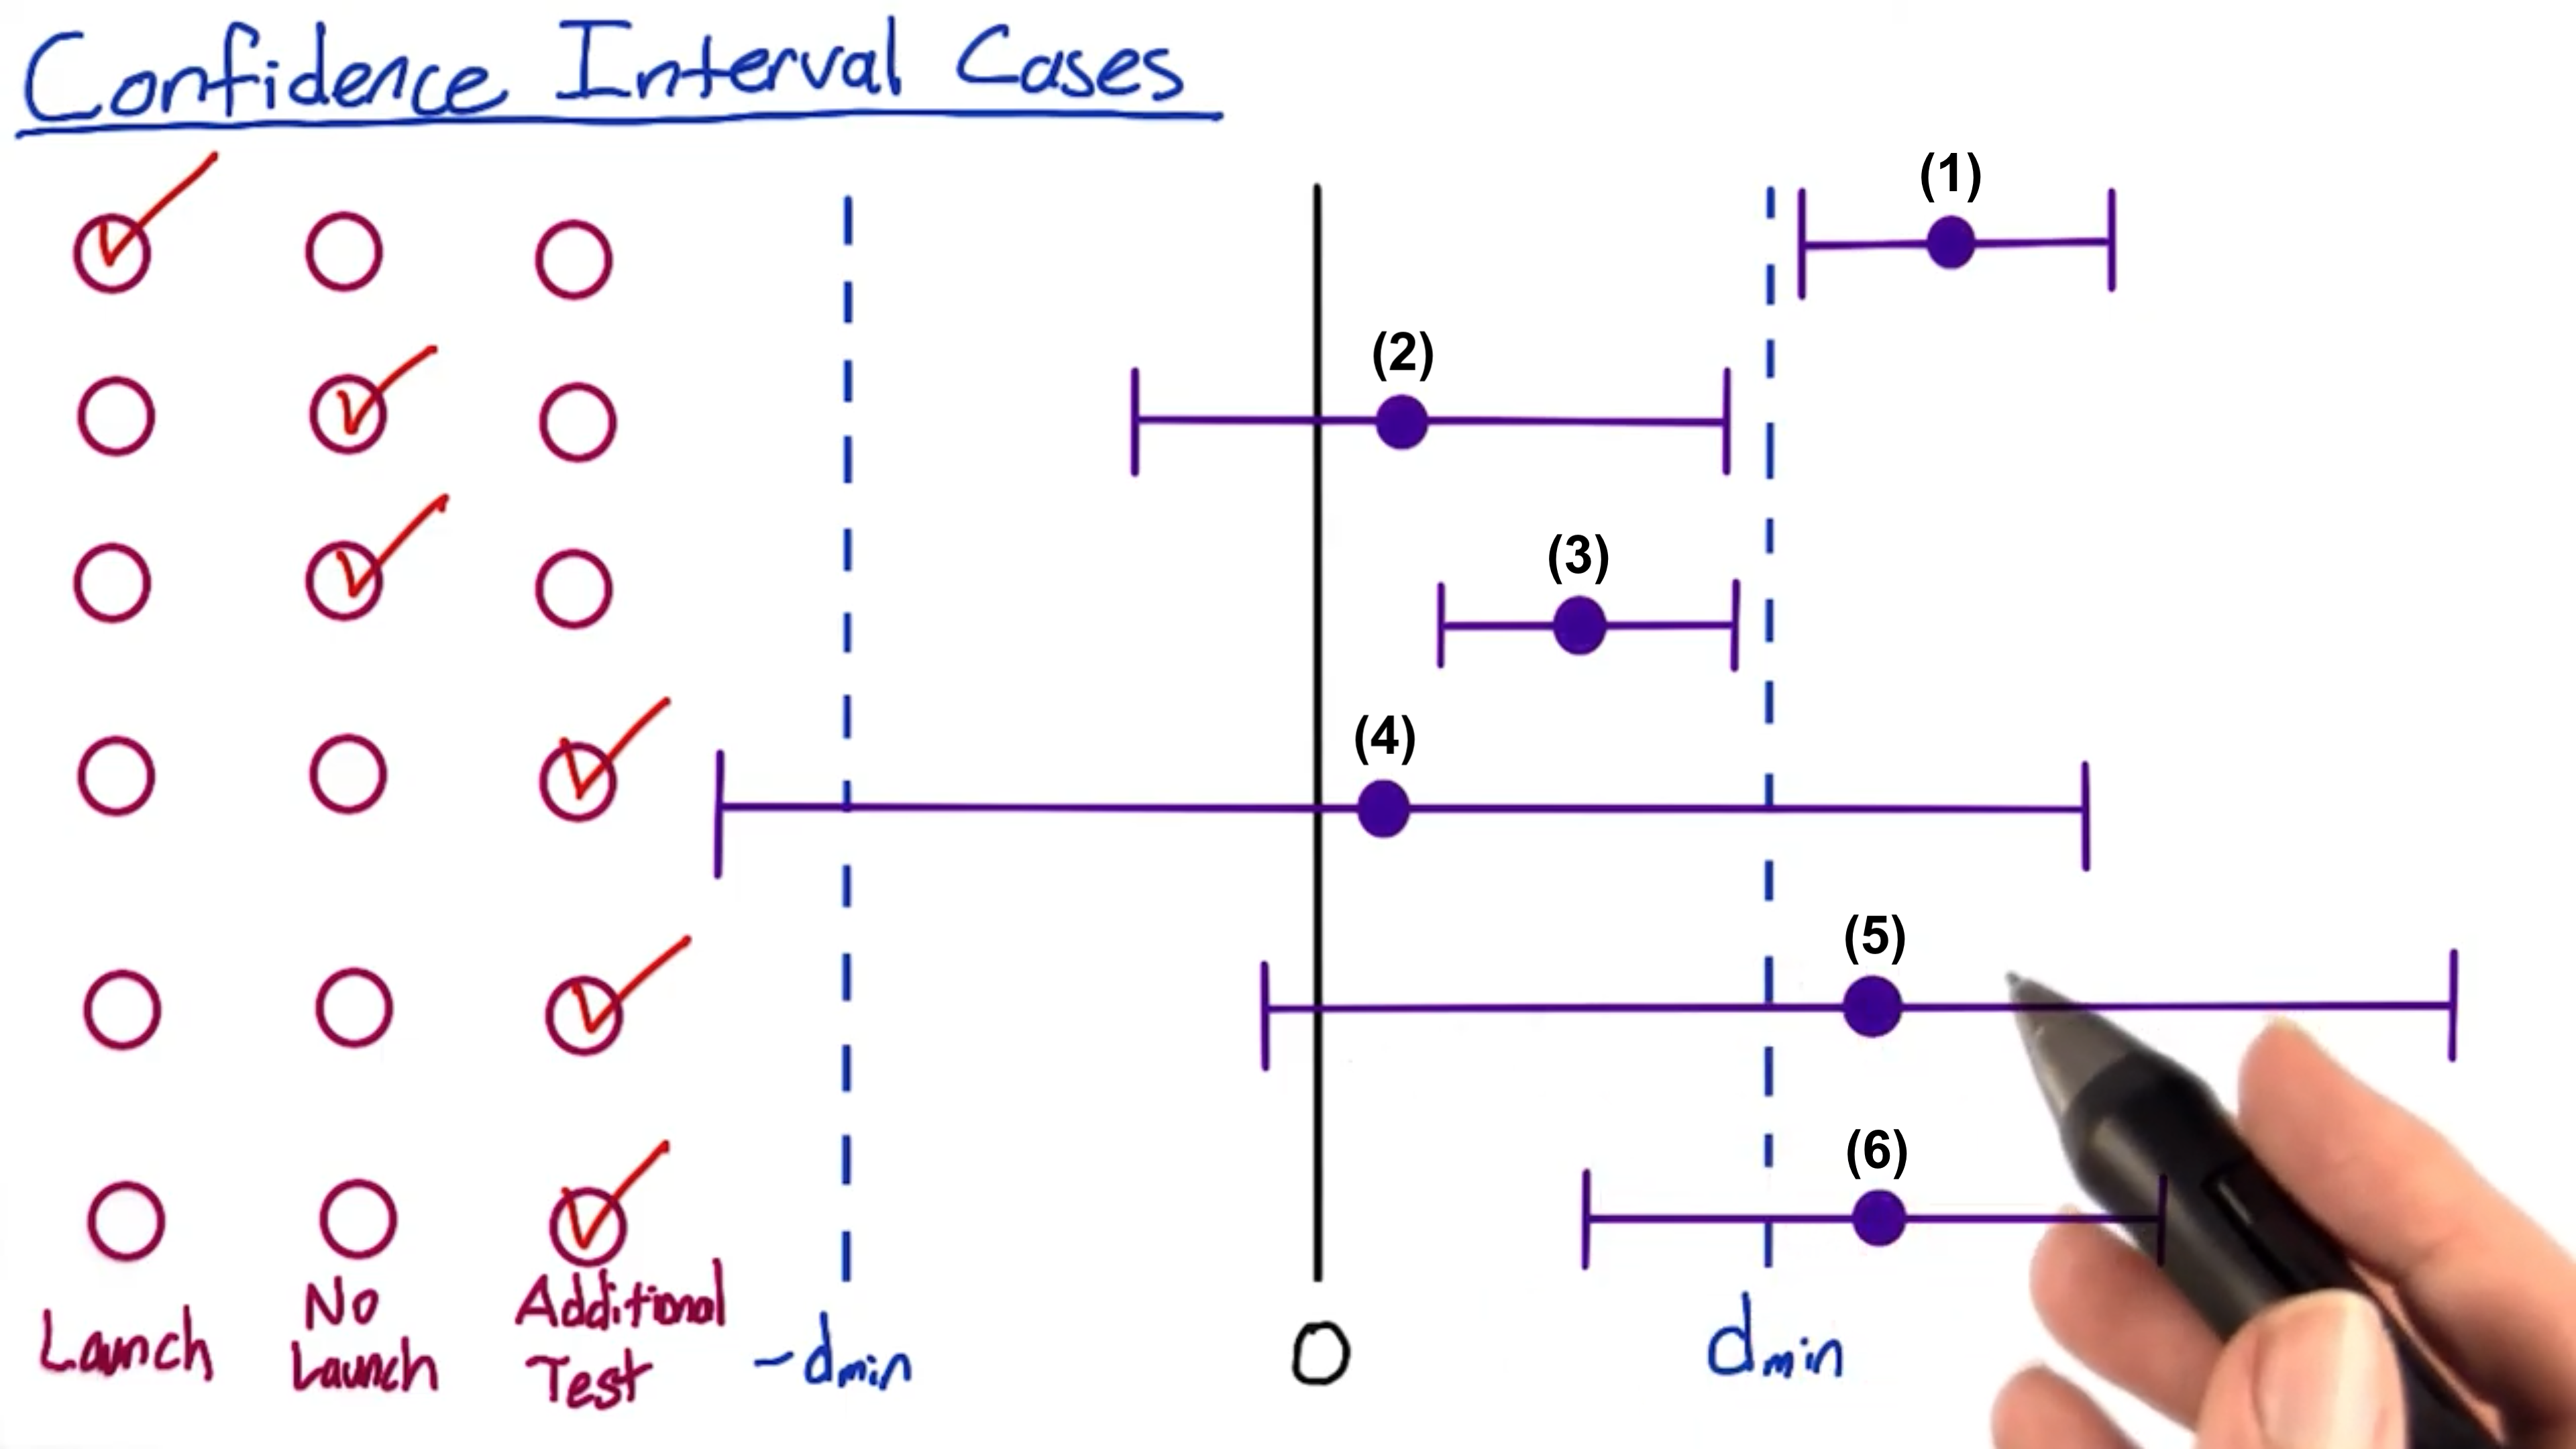 Confidence Interval Cases
(1)
(2)
(3)
(4)
(5)
(6)
Launch
No
Launch
Additional
Test
-dmin
0
dmin